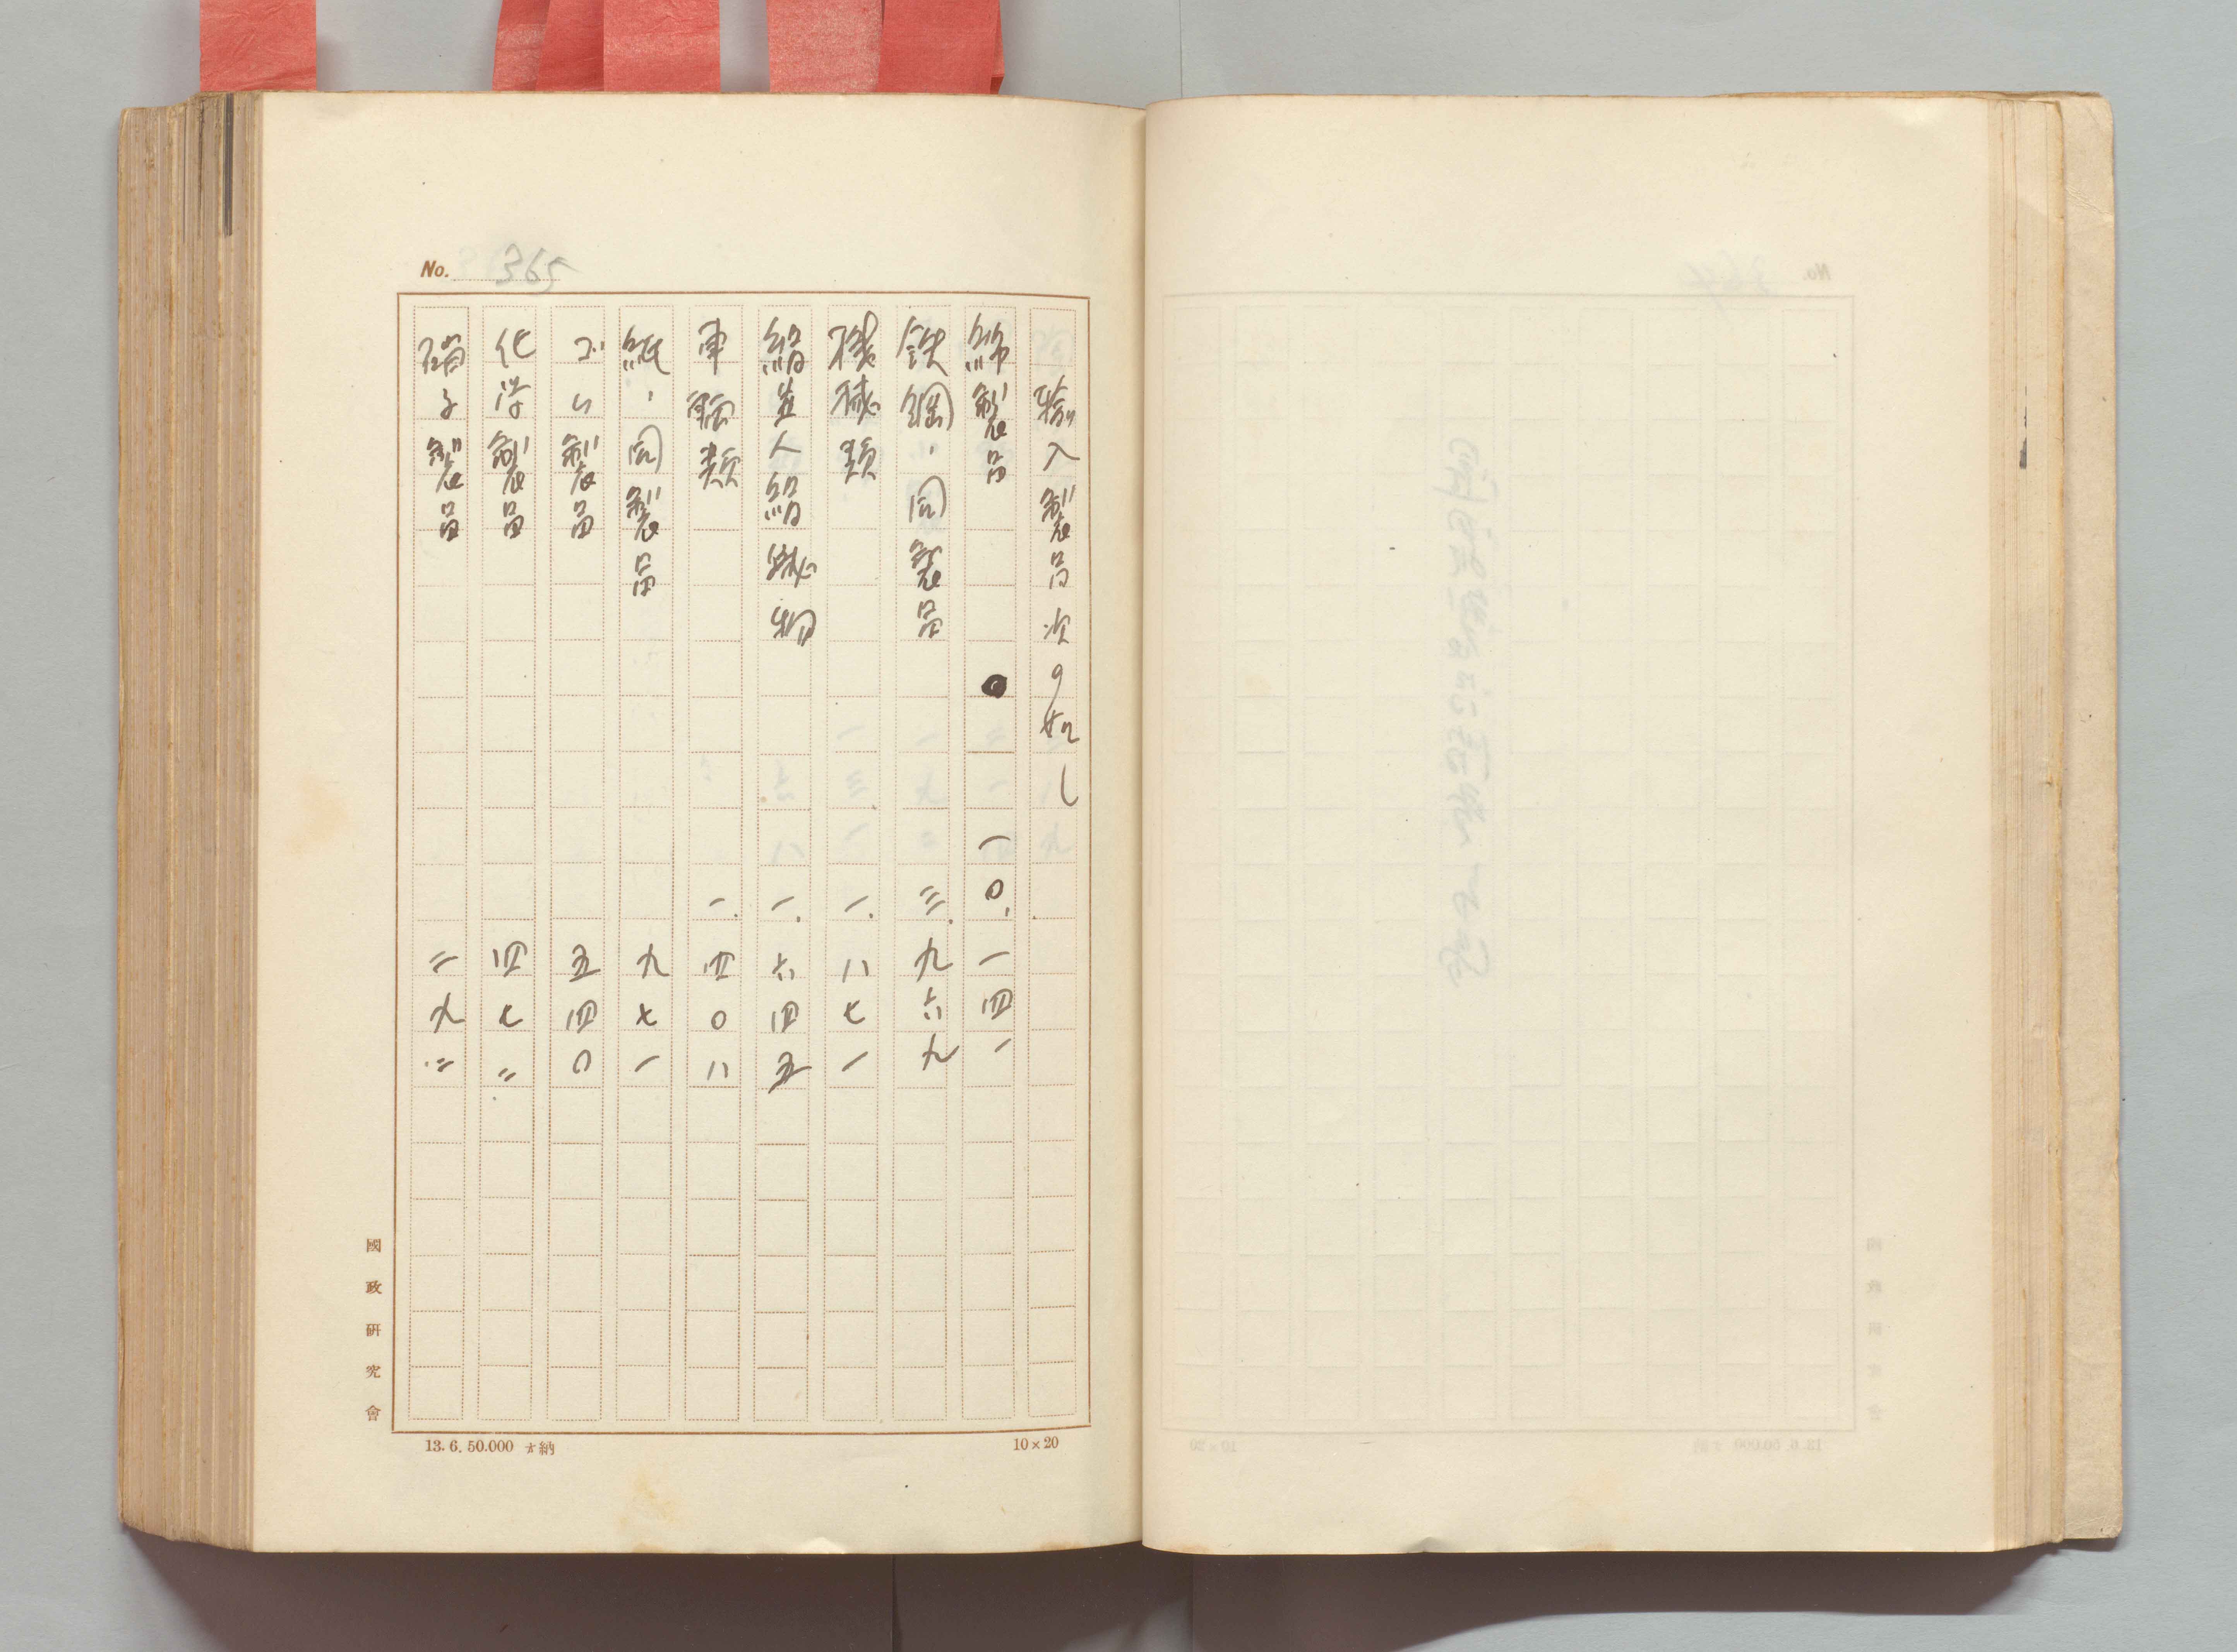 No. 365
輸入製品次の如し
綿製品 一〇.一四一
鉄鋼、同製品 三.九六九
機械類 一.八七一
絹並人絹織物 一.六四五
車輛類 一.四〇八
紙、同製品 九七一
ゴム製品 五四〇
化学製品 四七二
硝子製品 二九三
國政研究會
13.6.50.000 納
10×20